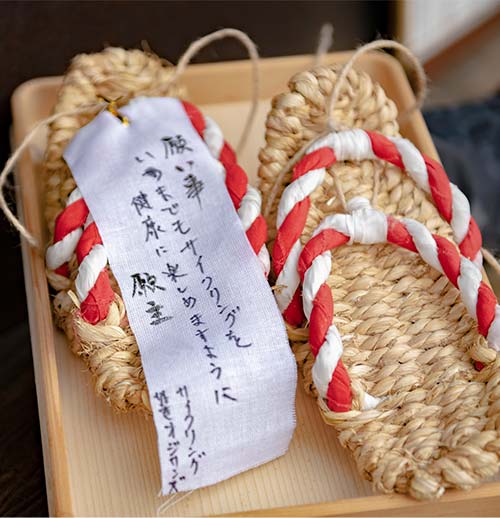 願い事
いつまでもサイクリングを
健康に楽しめますように
願主
サイクリング
好きオジサンズ